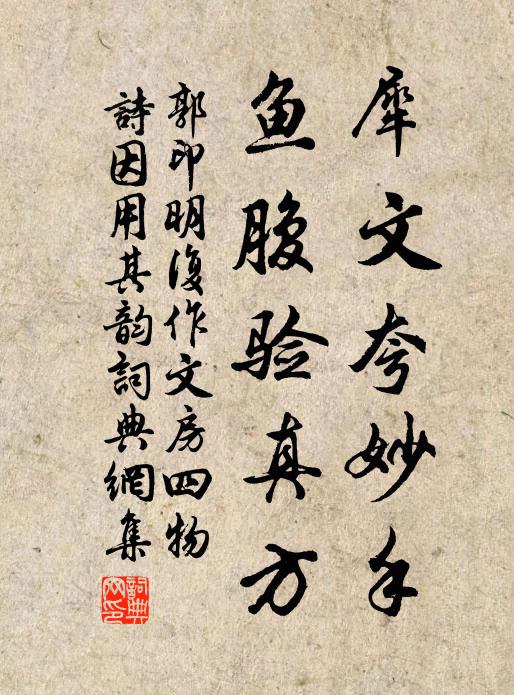 犀文夸妙手
鱼腹验真方
郭印明復作文房四物
詩因用其韵詞典網集
詞典網印